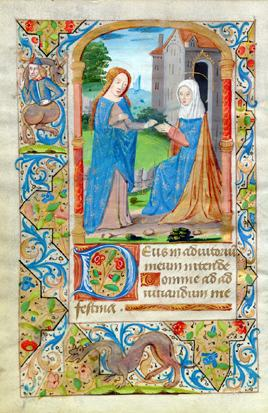 Deus in adiutorium
meum intende
Domine ad ad
iuvandum me
festina.